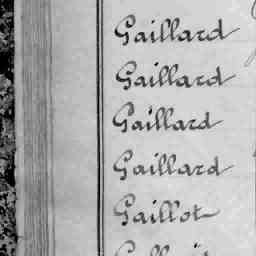 Gaillard
Gaillard
Gaillard
Gaillard
Gaillot